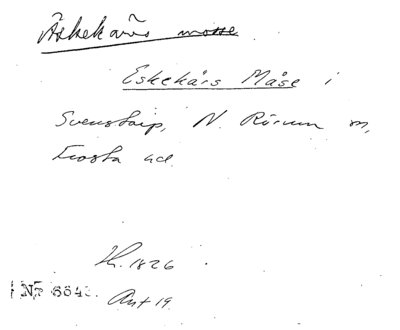 Äskekärs mosse
Eskekärs Måse i
Svenstorp, N. Rörum sn,
Frosta hd.
H. 1826
Nr 664
Ant 19.